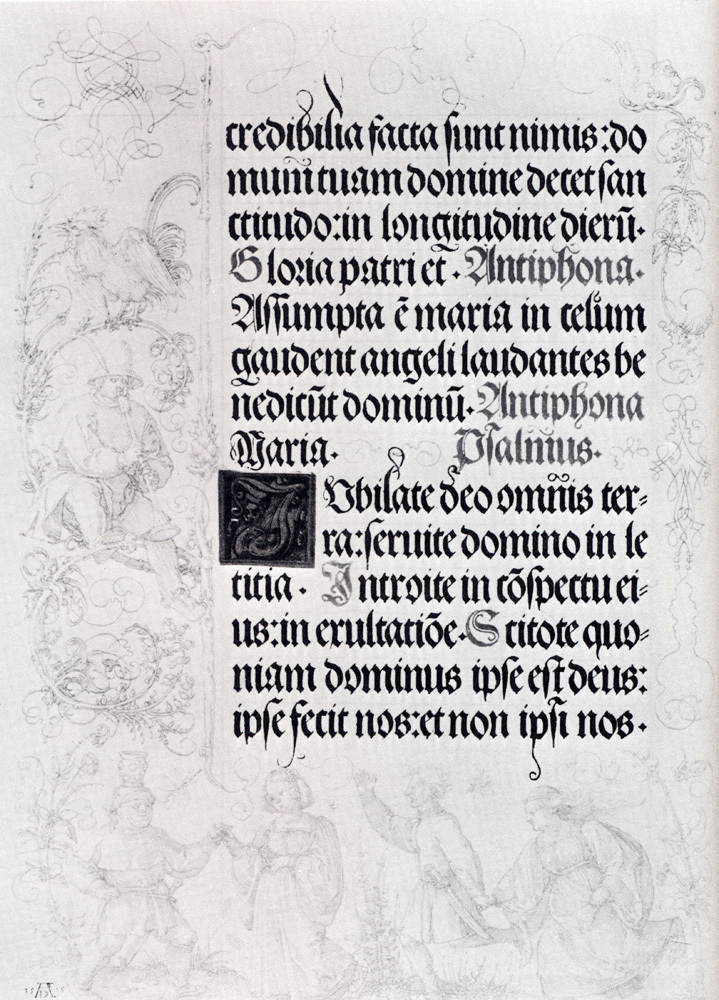 credibilia facta sunt nimis: do
mum̄ tuam domine decet san
ctitudo: in longitudine dierū.
Gloria patri et. Antiphona.
Assumpta ē maria in celum
gaudent angeli laudantes be
nedicūt dominū. Antiphona
Maria. Psalmus.
IVbilate deo omnīs ter=
ra: seruite domino in le
titia. Introite in cōspectu ei=
us: in exultatiōe. Scitote quo=
niam dominus ipse est deus:
ipse fecit nos: et non ipsi nos.
AD